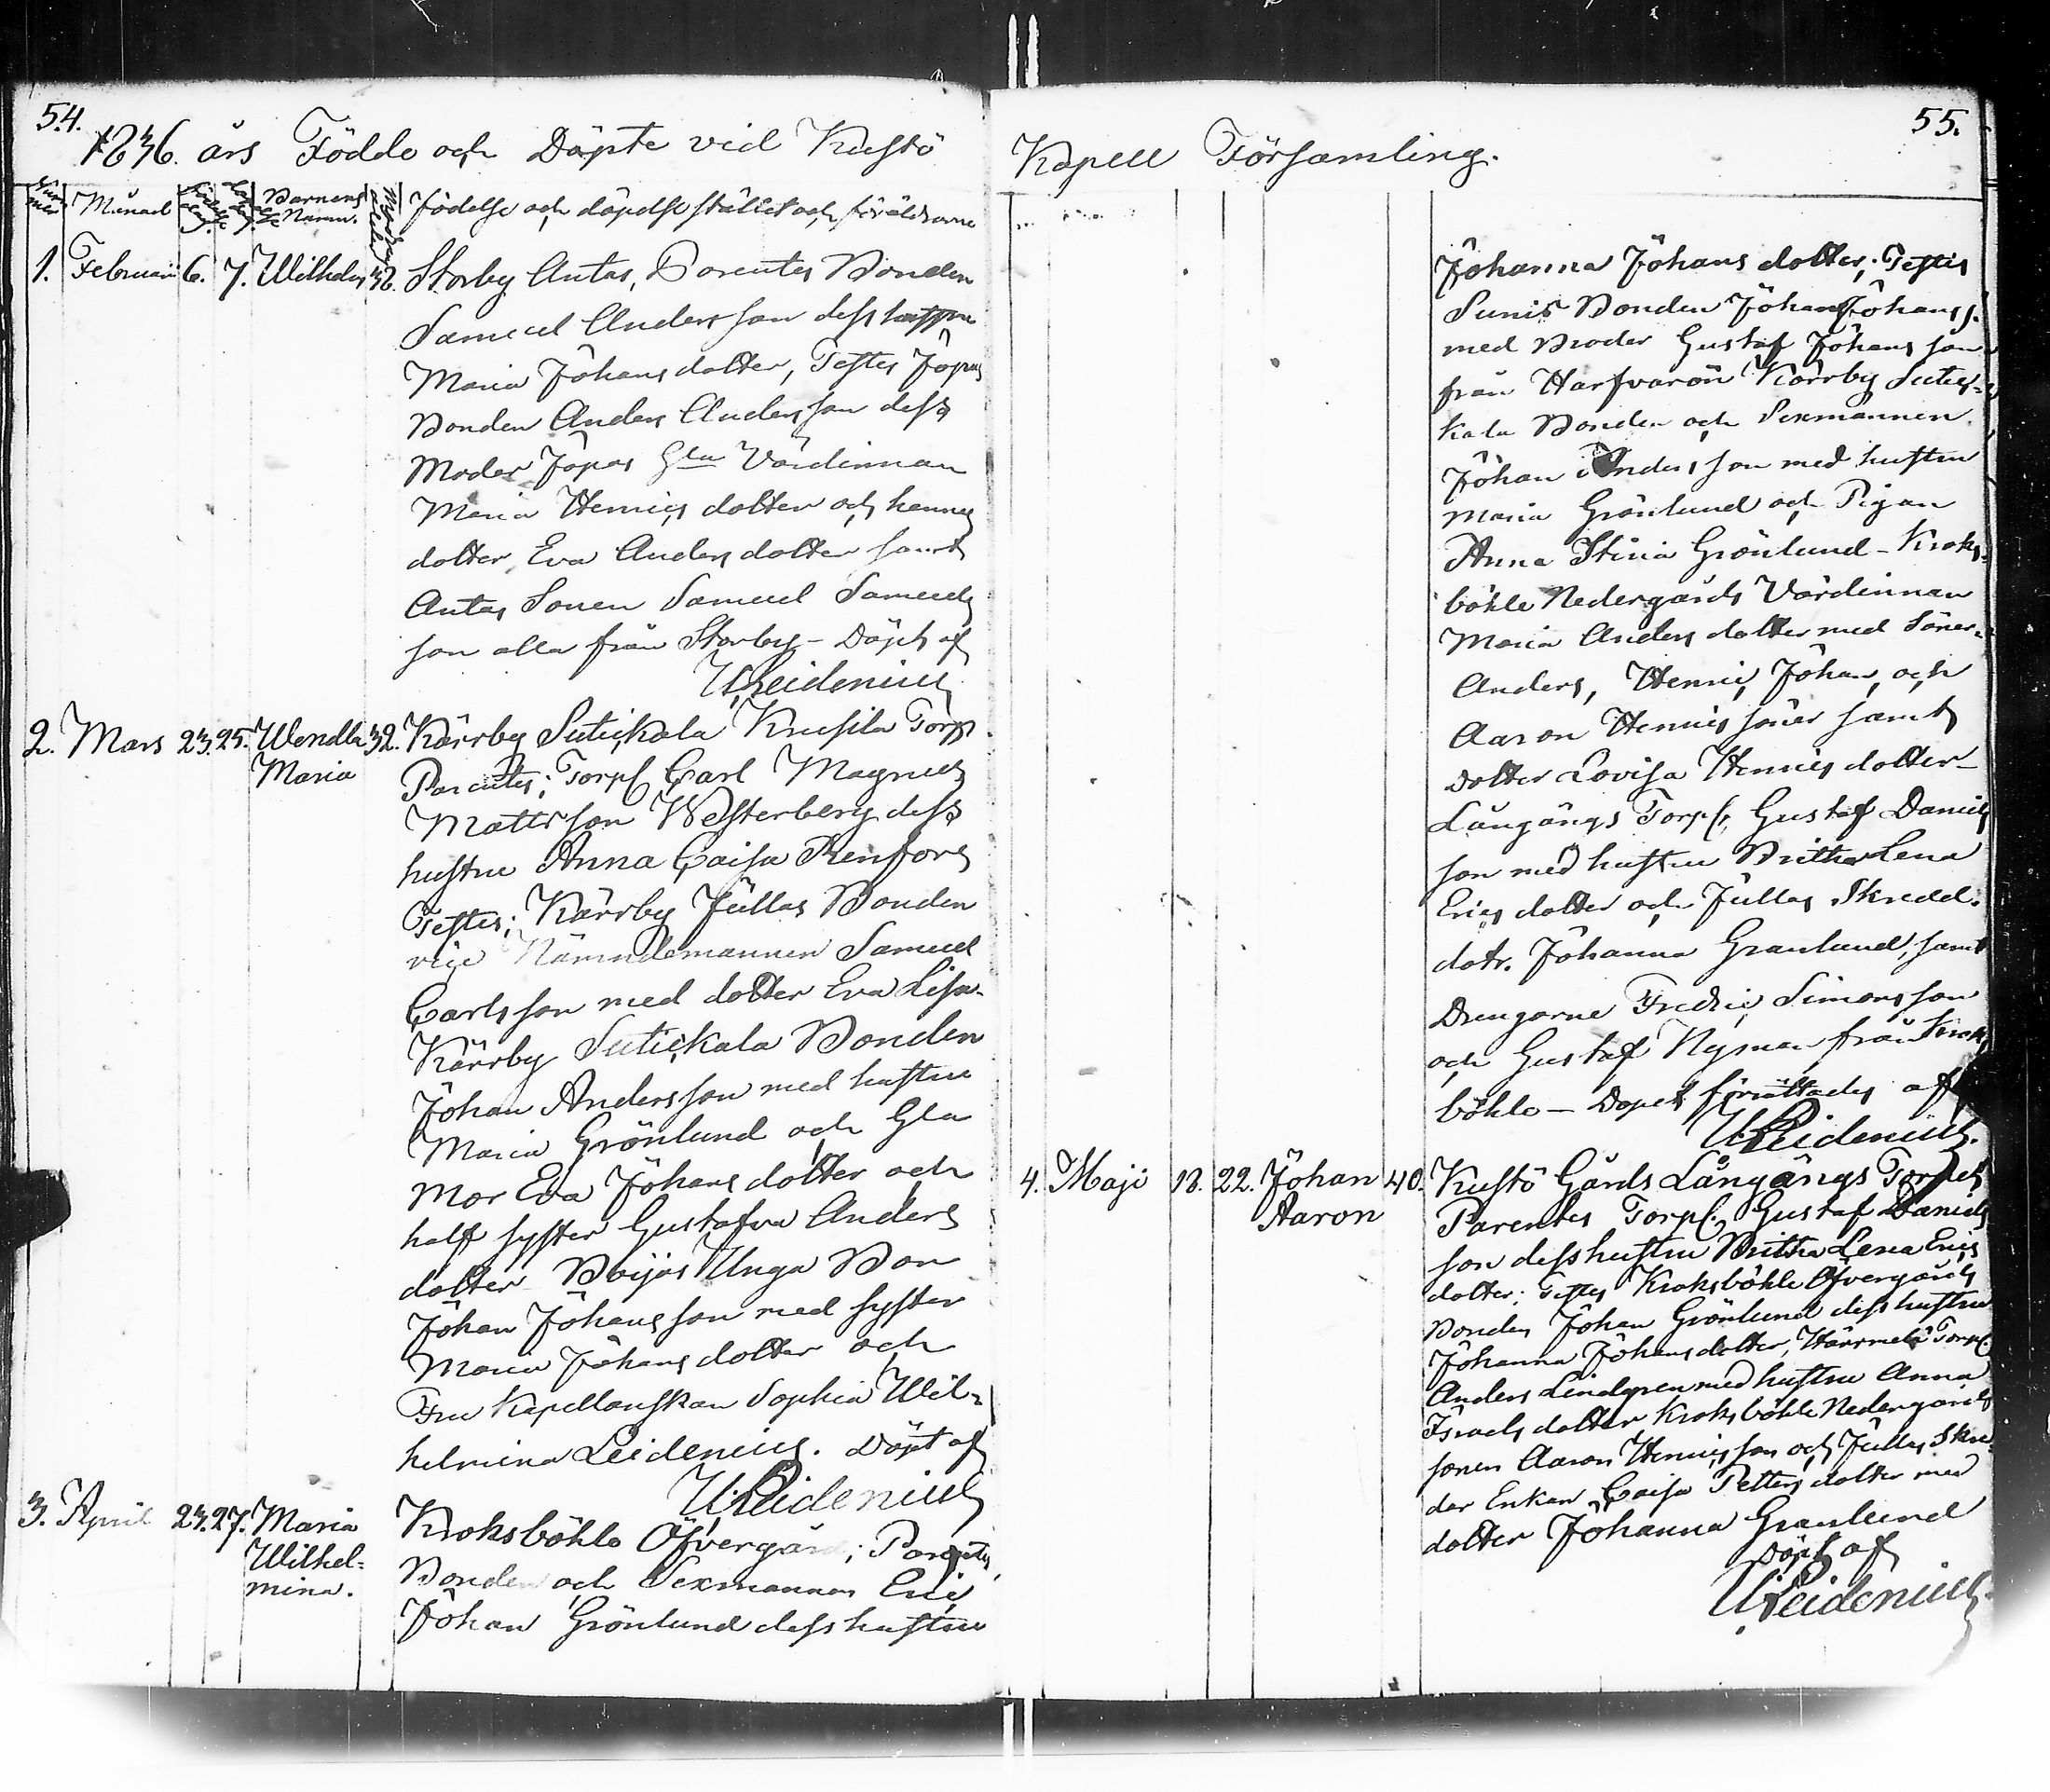 54.
1836. års Födde och Döpte vid Kustö
Månad Barnens Namn. födelse och döpelse stället och föräldrarne
1. Februari 6. 7. Wilhelm 32. Storby Antas, Parentes Bonden
Samuel Andersson dess hustru
Maria Johans dotter, Testes Jopas
Bonden Anders Andersson dess
Moder Jopas Gla Värdinnan
Maria Henrics dotter och hennes
dotter Eva Anders dotter samt
Antas Sonen Samuel Samuels
son alla från Storby - Döpt af
U. Leidenius
2. Mars 23. 25. Wendla 32. Kärrby Sutickala Krusila Torp
Maria Parentes; Torp. Carl Magnus
Matts son Westerberg dess
hustru Anna Caisa Renfors
Testes; Kärrby Jullas Bonden
vice Nämndemannen Samuel
Carlsson med dotter Eva Lisa.
Kärrby Sutickala Bonden
Johan Andersson med hustru
Maria Grönlund och Gla
Mor Eva Johans dotter och
half syster Gustafva Anders
dotter - Böijas Unga Bon
Johan Johansson med syster
Maria Johans dotter och
Fru Kapellanskan Sophia Wil-
helmina Leidenius. Döpt af
U. Leidenius
3. April 23. 27. Maria Kroksböhle Öfvergård; Parentes
Wilhel- Bonden och Sexmannen Eric
mina. Johan Grönlund dess hustru
55.
Kapell Församling.
Johanna Johans dotter; Testis
Sunis Bonden Johan Johans s.
med Broder Gustaf Johans son
från Harfvarön Kärrby Sutic-
kala Bonden och Sexmannen
Johan Andersson med hustru
Maria Grönlund och Pigan
Anna Stina Grönlund - Kroks-
böhle Nedergårds Värdinnan
Maria Anders dotter med Söner
Anders, Henric, Johan, och
Aaron Henrics söner samt
dotter Lovisa Henrics dotter -
Långängs Torp. Gustaf Daniels
son med hustru Britha Lena
Erics dotter och Jullas Skredd.
dotr. Johanna Granlund, samt
Drengarne Fredric Simonsson
och Gustaf Nyman från Kroks
böhle - Dopet förrättades af
U. Leidenius.
4. Maji 18. 22. Johan 40. Kustö Gårds Långängs Torpet
Aaron Parentes Torp. Gustaf Daniels
son dess hustru Britha Lena Erics
dotter; Testes Kroksböhle Öfvergårds
Bonden Johan Grönlund dess hustru
Johanna Johans dotter, Torp.
Anders Lindgren med hustru Anna
Israels dotter Kroksböhle Nedergårds
sonen Aaron Henrics son och Jullas Skre-
dar Enkan Caisa Petters dotter med
dotter Johanna Granlund
Döpt af
U. Leidenius